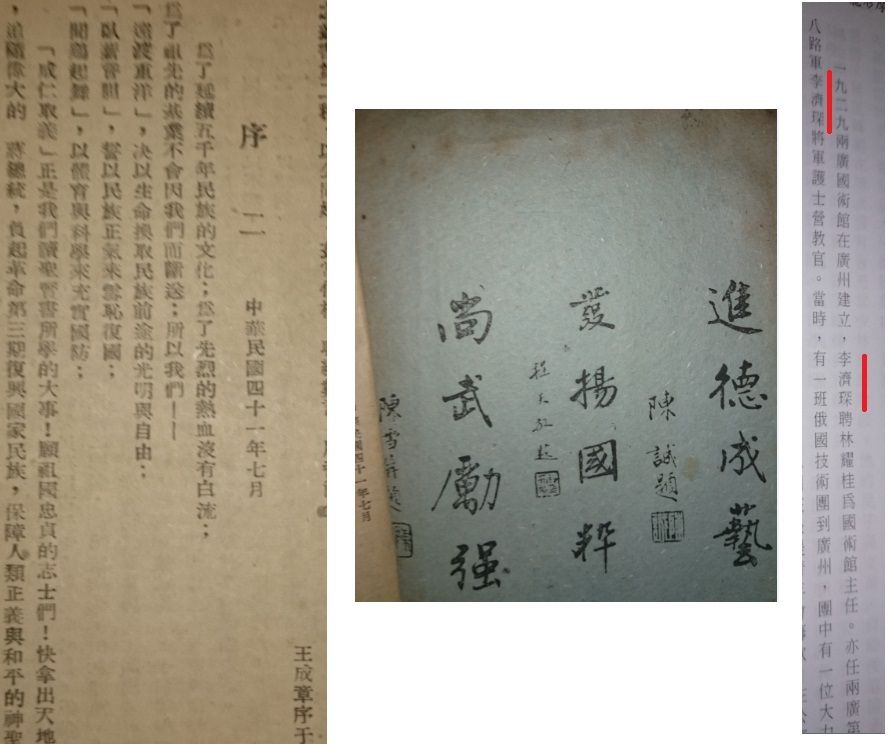 王成章序于
序　二　中華民國四十一年七月
爲了延續五千年民族的文化；爲了先烈的熱血沒有白流；
爲了祖先的基業不會因我們而斷送；所以我們！——
「遠渡重洋」，決以生命換取民族前途的光明與自由；
「臥薪嘗胆」，誓以民族正氣來雪恥復國；
「聞鷄起舞」，以體育與科學來充實國防；
「成仁取義」正是我們讀聖賢書所學的大事！願祖國忠貞的志士們！快拿出天地
，追隨偉大的　蔣總統，負起革命第三期復興國家民族，保障人類正義與和平的神聖
進德成藝
陳誠題
發揚國粹
程天放題
尚武勵强
陳雪屏題
四十一年七月
一九二九兩廣國術館在廣州建立，李濟琛聘林耀桂爲國術館主任。亦任兩廣第
八路軍李濟琛將軍護士營教官。當時，有一班俄國技術團到廣州，團中有一位大力